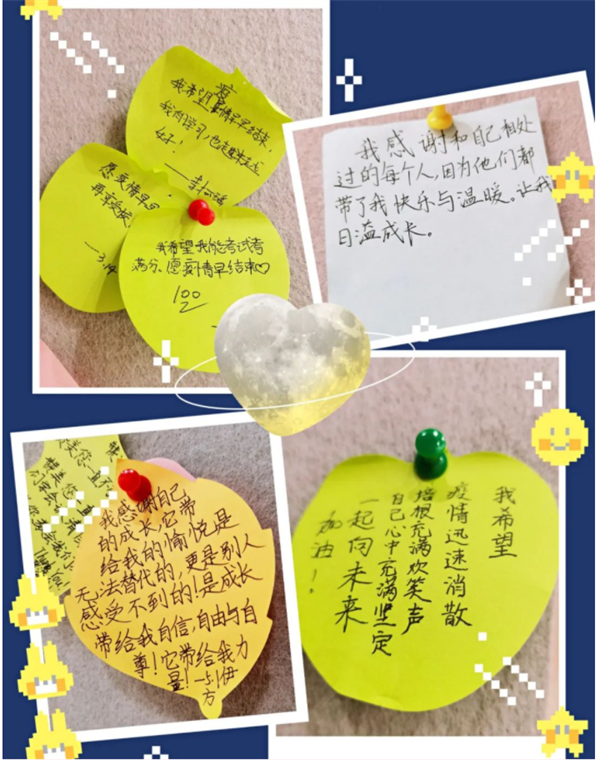 我希望疫情早早结束,
我的学习,也
好!
愿疫情早日
再
我希望我能考试考
满分、愿疫情早结束♡
100
我感谢和自己相处
过的每个人,因为他们都
带了我快乐与温暖。让我
日溢成长。
我感谢自己
的成长,它带
给我的愉悦是
无法替代的,更是别人
感受不到的!是成长
带给我自信,自由与自
尊!它带给我力
量!
我希望
疫情迅速消散
培根充满欢笑声
自己心中充满坚定
一起向未来
加油!